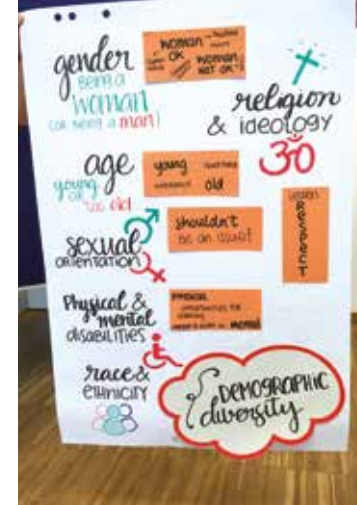 gender
being a
woman
(or being a man!)
woman
OK
woman
NOT OK
religion
& ideology
age
young
or
too old
young
old
sexual
orientation
shouldn't
be an issue!
RESPECT
Physical &
mental
disabilities
PHYSICAL
MENTAL
race &
ethnicity
DEMOGRAPHIC
diversity